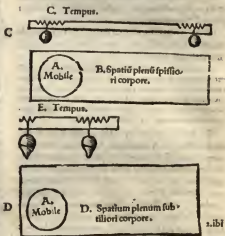 C. Tempus.
C
A.
Mobile
B. Spatiũ plenũ spissio
ri corpore.
E. Tempus.
A.
Mobile
D
D. Spatium plenum sub-
tiliori corpore.
2.ibi